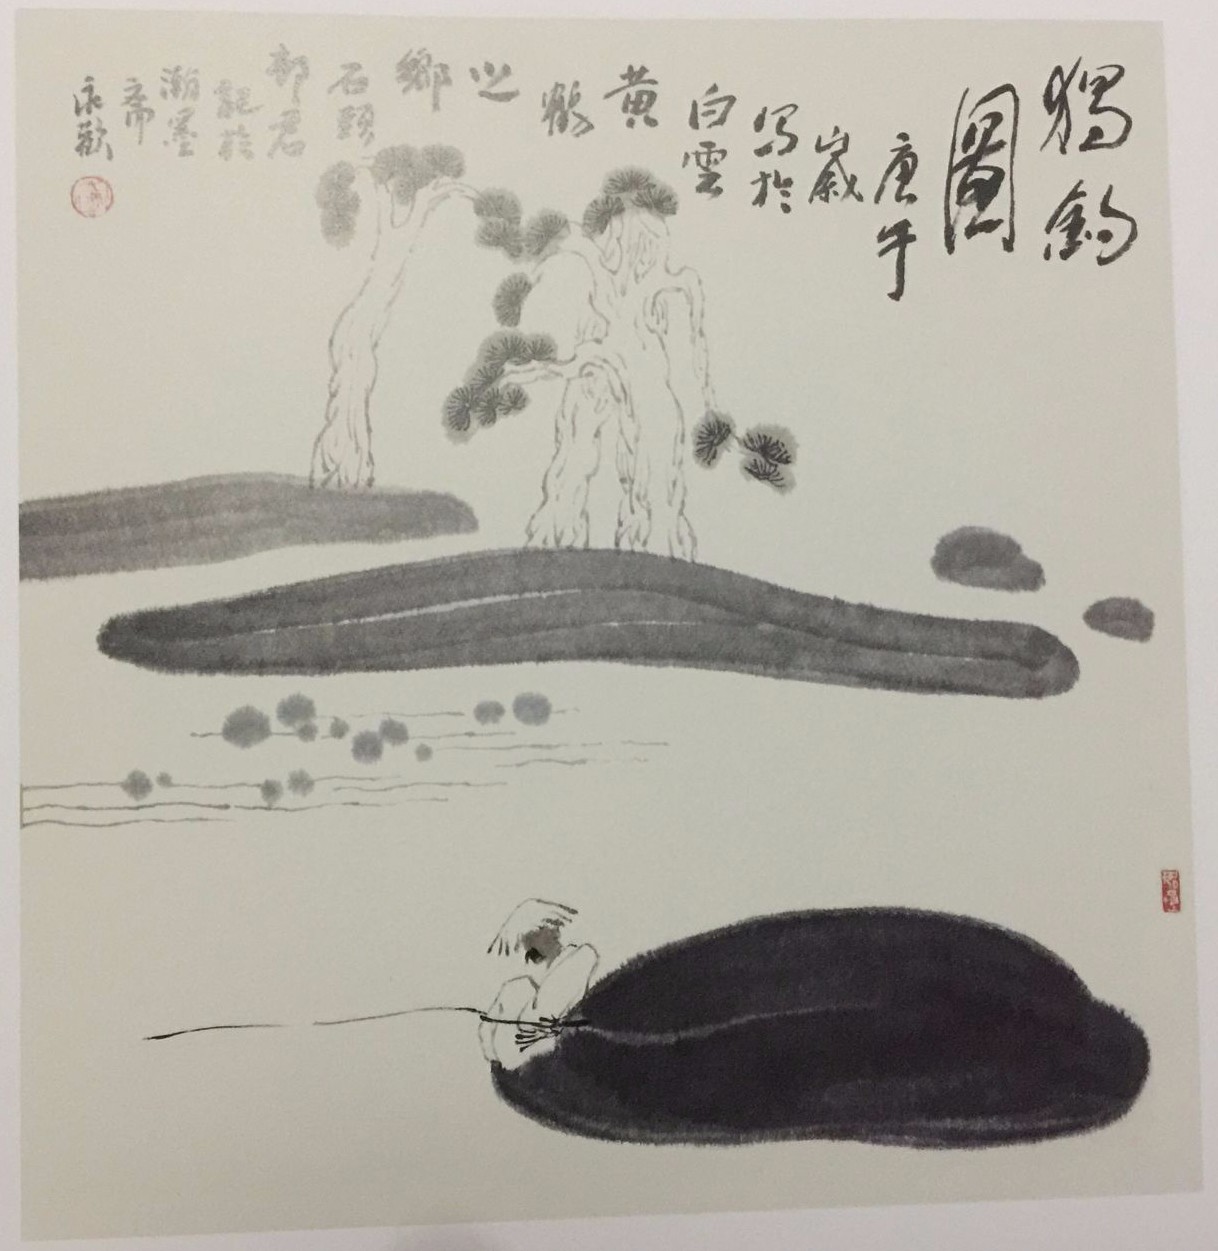 獨釣
圖
庚午
歲
寫於
白雲
黃
鶴
之
鄉
石頭
部君
記於
潮墨
齋
永歡